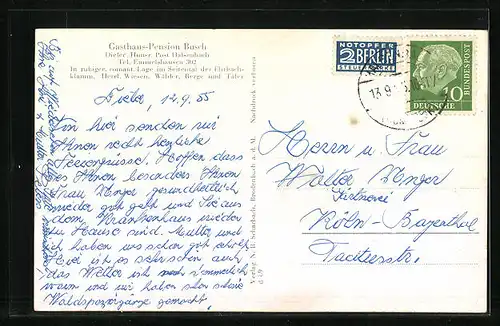 Gasthaus-Pension Busch
Dieler, Hunsr. Post Halsenbach
Tel. Emmelshausen 302
In ruhiger, romant. Lage im Seitental der Ehrbach-
klamm. Herrl. Wiesen, Wälder, Berge und Täler
Dieler, 12.9.55
Von hier senden wir
Ihnen recht herzliche
Feriengrüsse. Hoffen dass
es Ihnen besonders Ihnen
Frau Unger gesundheitlich
wieder gut geht und Sie aus
dem Krankenhaus wieder
zu Hause sind. Mutter und
ich haben uns schon gut erholt.
Hier ist es sehr schön auch
das Wetter ist noch ziemlich
warm und wir haben schon schöne
Waldspaziergänge gemacht,
Nachdruck verboten
Verlag A. B.
NOTOPFER
2 BERLIN
STEUERMARKE
13.9.
10
DEUTSCHE
BUNDESPOST
Herrn u. Frau
Walter Unger
Köln - Bayenthal
Tacitusstr.